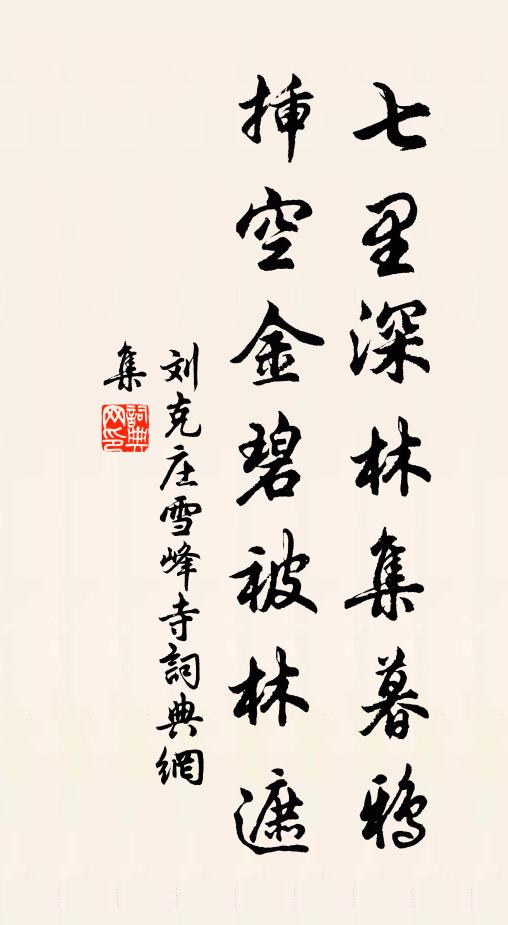 七里深林集暮鴉
插空金碧被林遮
刘克庄雪峰寺詞典網
集
詞典网印